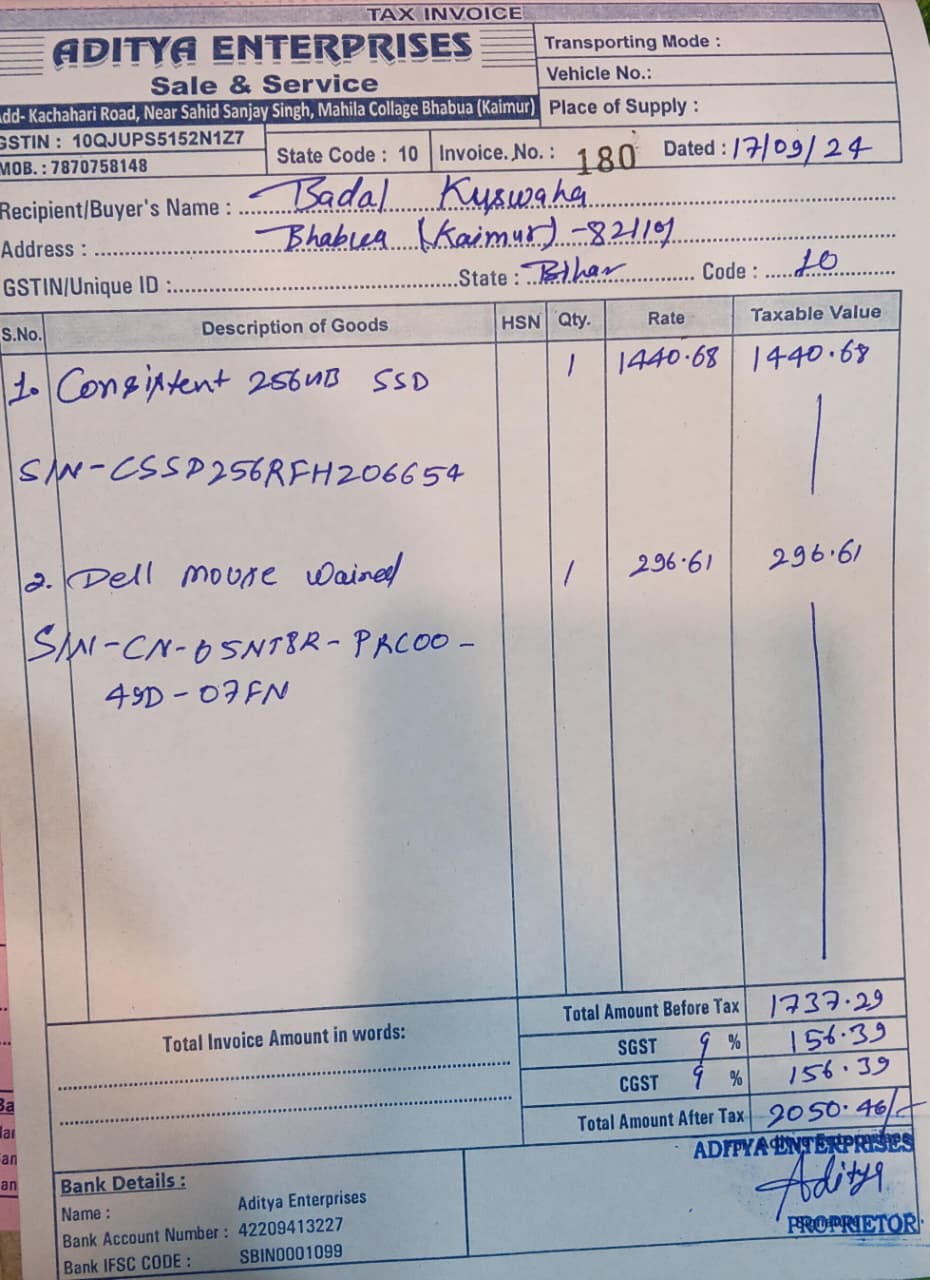 TAX INVOICE
ADITYA ENTERPRISES
Sale & Service
Add- Kachahari Road, Near Sahid Sanjay Singh, Mahila Collage Bhabua (Kaimur)
GSTIN : 10QJUPS5152N1Z7
MOB. : 7870758148
State Code : 10
Invoice. No. : 180
Transporting Mode :
Vehicle No.:
Place of Supply :
Dated : 17/09/24
Recipient/Buyer's Name : Badal Kuswaha
Address : Bhabua (Kaimur) - 821101
GSTIN/Unique ID : State : Bihar Code : 10
S.No. Description of Goods HSN Qty. Rate Taxable Value
1. Consistent 256GB SSD 1 1440.68 1440.68
S/N-CSSD256RFH206654
2. Dell mouse wained 1 296.61 296.61
S/N-CN-05NT8R-PRC00-
49D-07FN
Total Amount Before Tax 1737.29
Total Invoice Amount in words:
SGST 9 % 156.39
CGST 9 % 156.39
Total Amount After Tax 2050.46/-
ADITYA ENTERPRISES
Aditya
PROPRIETOR
Bank Details :
Name : Aditya Enterprises
Bank Account Number : 42209413227
Bank IFSC CODE : SBIN0001099